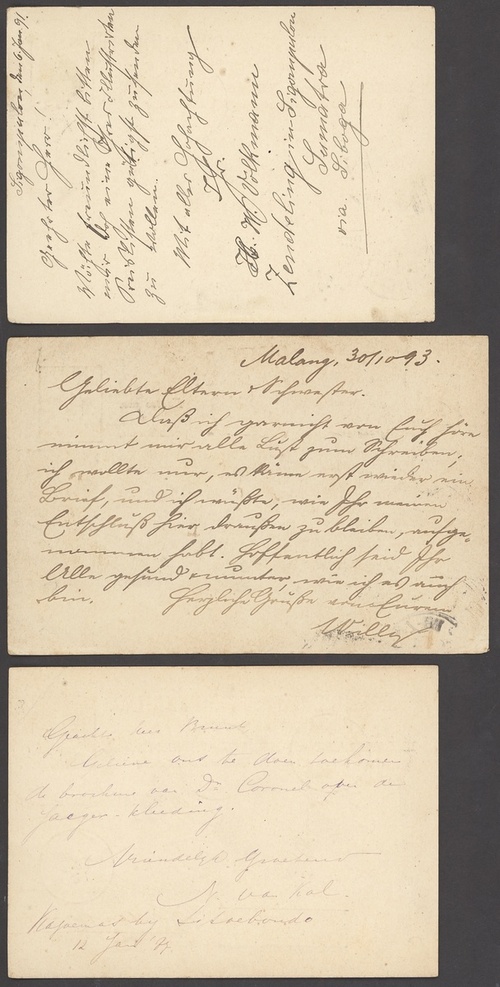 Sigompulon, den 6 Jan 91.
Geehrter Herr!
Möchte freundlichst bitten
mir eine Ihrer illustrirten
Preislisten gütigst zusenden
zu wollen.
Mit aller Hochachtung
Ihr
H. W. Volkmann
Zendeling in Sigompulon
Sumatra
via. Siboga
Malang, 30/10 93.
Geliebte Eltern & Schwester.
Daß ich garnicht von Euch höre
nimmt mir alle Lust zum Schreiben;
ich wollte nur, es käme erst wieder ein
Brief, und ich wüßte, wie Ihr meinen
Entschluß hier draußen zu bleiben, aufge-
nommen habt. Hoffentlich seid Ihr
Alle gesund & munter wie ich es auch
bin. Herzliche Grüße von Eurem
Willy
Geachte heer
Gelieve ons te doen toekomen
de brochure van Dr Coronel over de
Jaeger-kleeding.
Vriendelijk Groetend
v. Kol.
by Sitoebondo
12 Jan